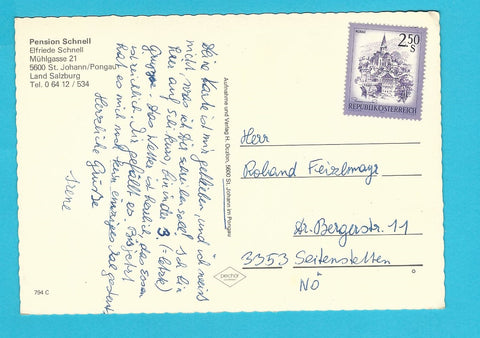 Pension Schnell
Elfriede Schnell
Mühlgasse 21
5600 St. Johann/Pongau
Land Salzburg
Tel. 0 64 12 / 534
Eine Karte ist mir geblieben, und ich weiß
nicht, was ich Dir schreiben soll! Ich bin
hier auf Schikurs, bin in der 3. (= letzte)
Gruppe. Das Wetter ist herrlich, das Essen
Mir gefällt es. Bis jetzt
hat es mich noch kein einziges Mal gestaut.
Herzliche Grüße
Irene
Aufnahme und Verlag H. Oczlon, 5600 St. Johann im Pongau
754 C
MURAU
2.50
S
REPUBLIK ÖSTERREICH
Herr
Roland Feizlmayr
Dr. Bergerstr. 11
3353 Seitenstetten
NÖ